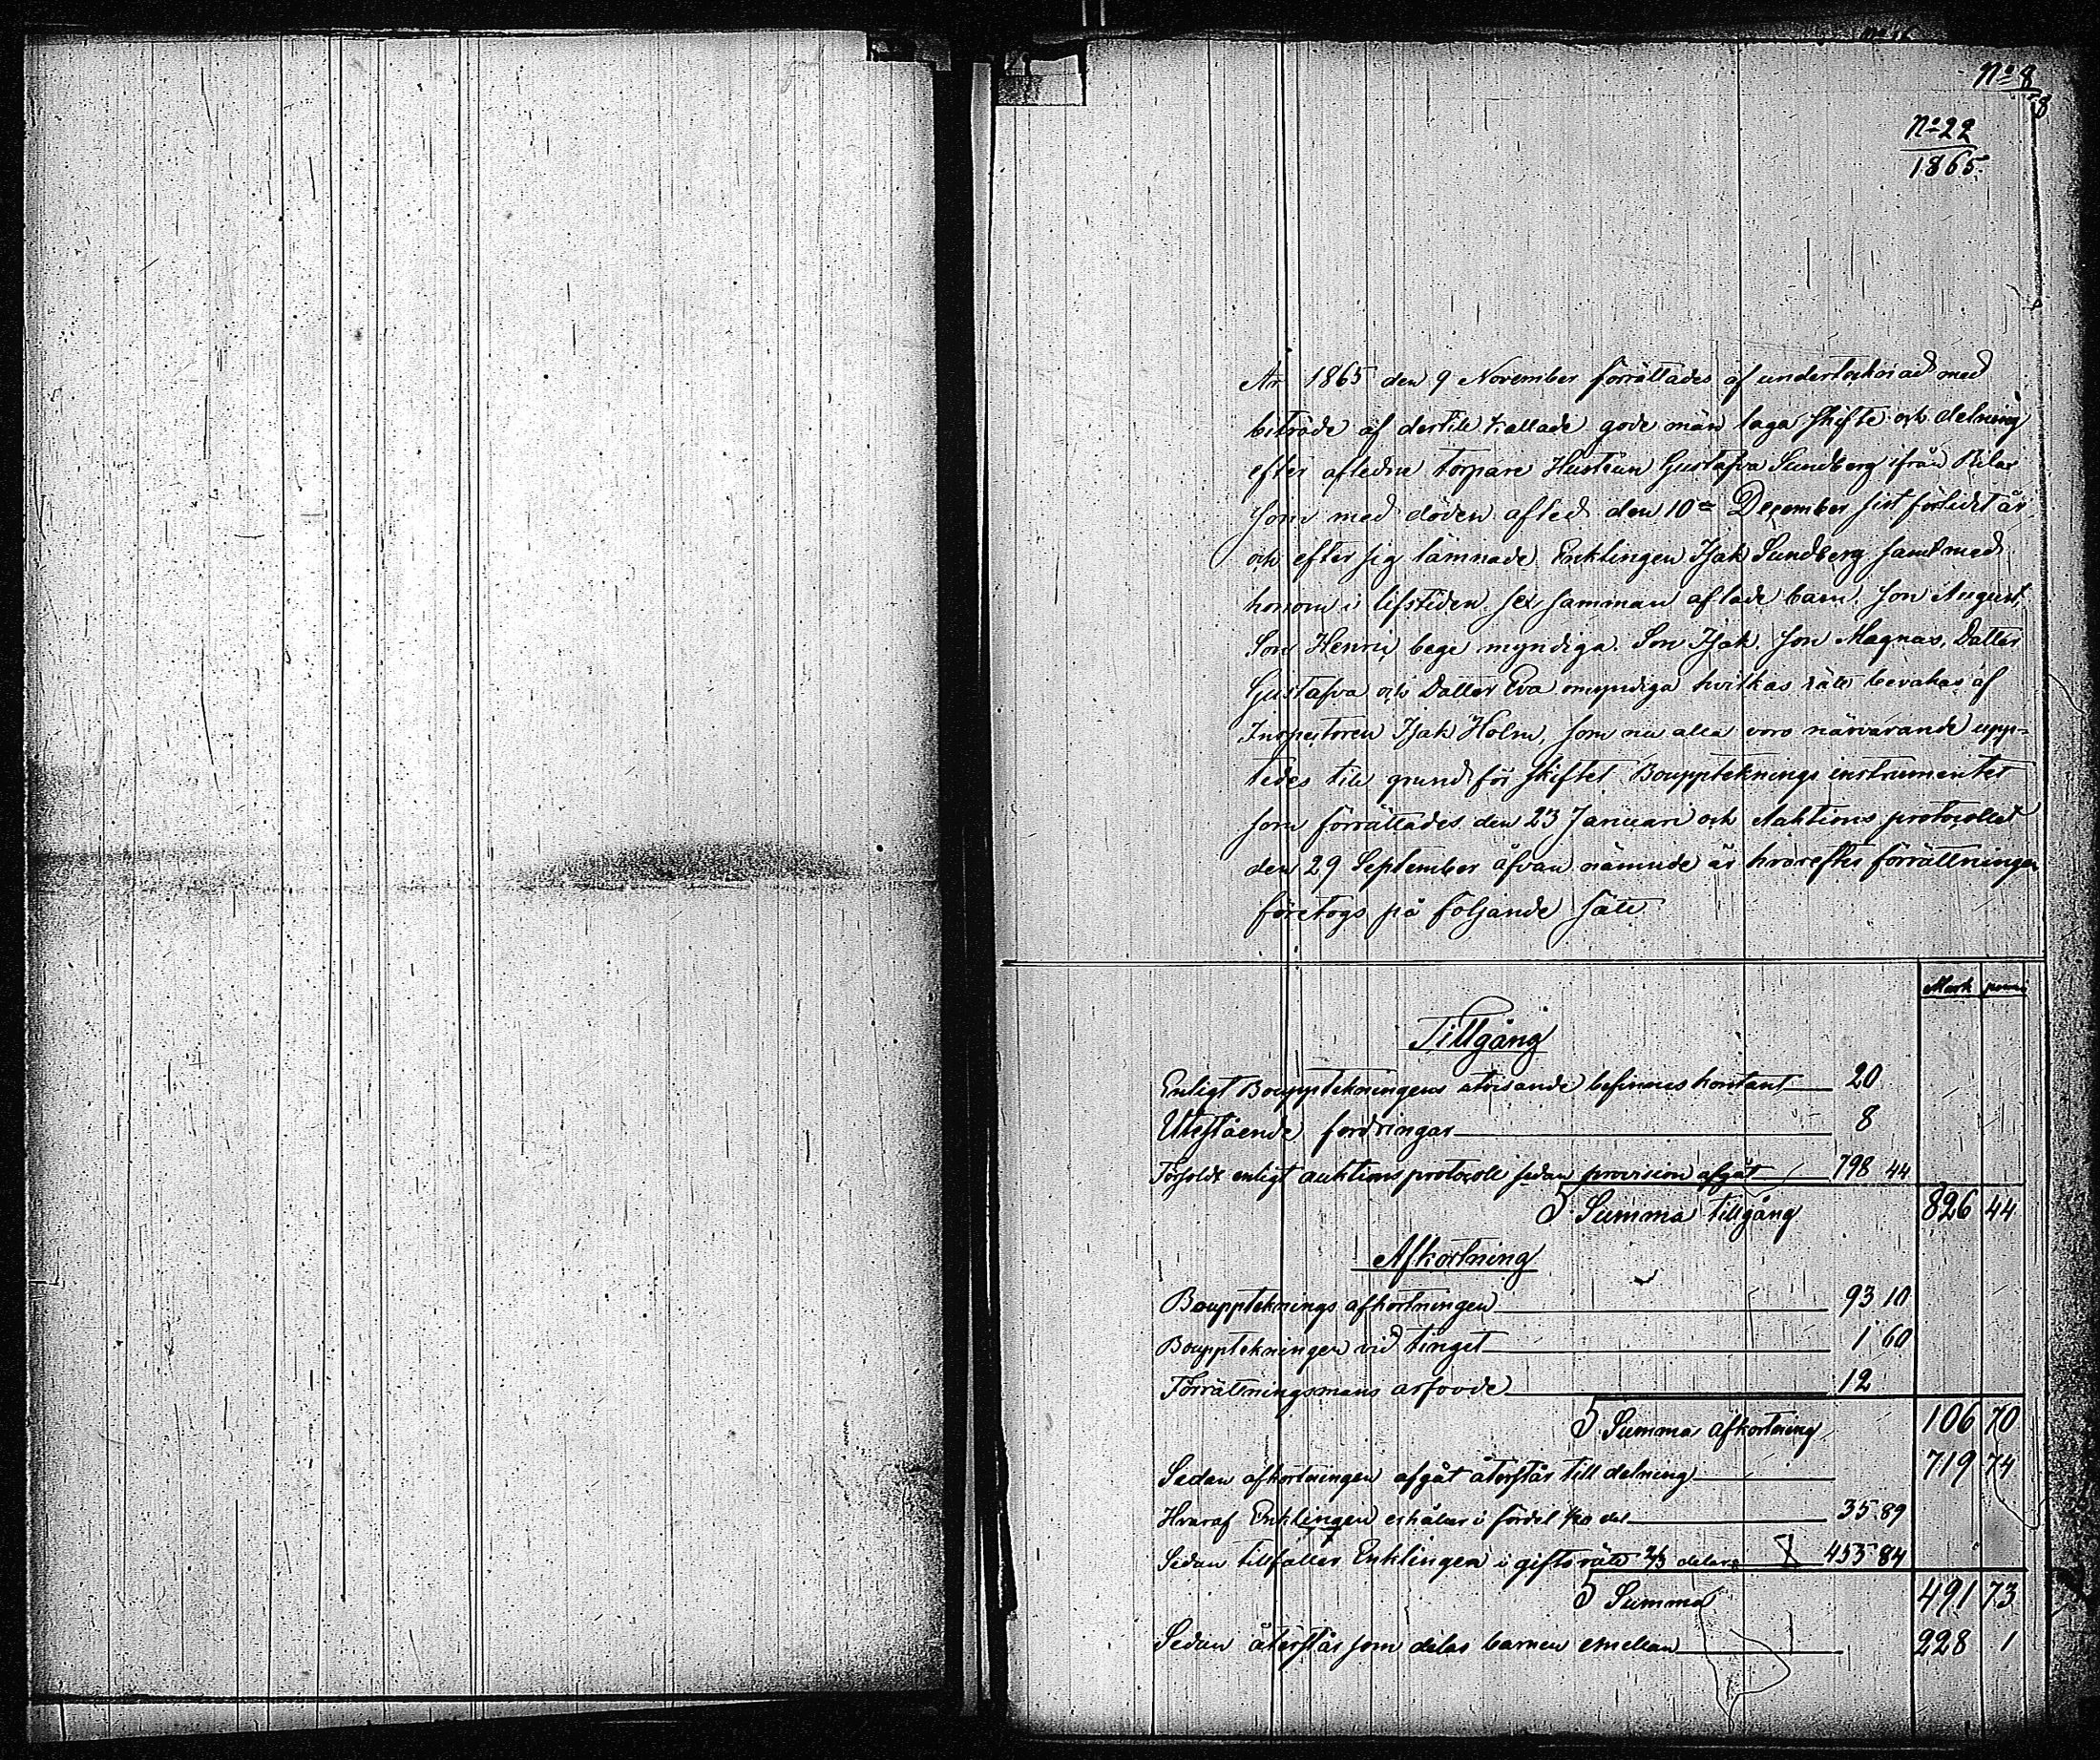 No 8
8
No 22
1865.
År 1865 den 9 November förrättades af undertecknad med
biträde af dertill kallade gode män laga skifte och delning
efter afledne torpare Hustrun Gustafva Sundberg ifrån Rilax
som med döden afled den 10de December sist förlidit år
och efter sig lämnade Enklingen Isak Sundberg samt med
honom i lifstiden sex samman aflade barn. Son August,
Son Henric bege myndiga. Son Isak. Son Magnus, Dotter
Gustafva och Dotter Eva omyndiga hvilkas rätt bevakas af
Inspectoren Isak Holm, som nu alla voro närvarande upp=
tedes till grund för skiftet Bouppteknings instrumentet
som förrättades den 23 Januari och Auktions protocollet
den 29 September åfvan nämnde år hvarefter förrättningen
företogs på följande sätt
Mark penni
Tillgång
Enligt Bouppteckningens utvisande befinnes kontant 20
Utestående fordringar 8
Försoldt enligt auktions protocoll sedan provision afgåt 798 44
S. Summa tillgång 826 44
Afkortning
Bouppteknings afkortningen 93 10
Bouppteckningen vid tinget 1 60
Förrättningsmans arfvode 12
S. Summa afkortning 106 70
Sedan afkortningen afgåt återstår till delning 719 74
Hvaraf Enklingen erhåller i fördel 1/20 del 35 89
Sedan tillfaller Enklingen i giftorätt 2/3 delar 455 84
S Summa 491 73
Sedan återstår som delas barnen emellan 228 1